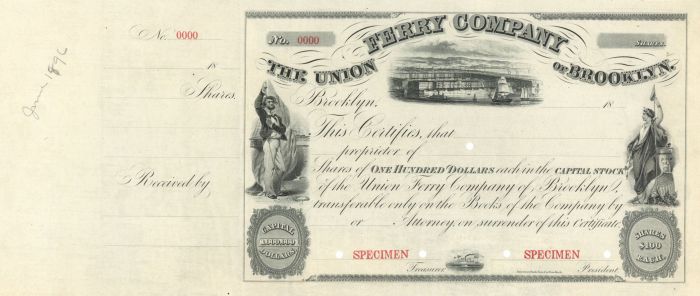 June 1896
No. 0000
18
Shares,
Received by
No. 0000
SHARES.
THE UNION FERRY COMPANY OF BROOKLYN.
Brooklyn, 18
This Certifies, that
proprietor of
Shares of ONE HUNDRED DOLLARS each in the CAPITAL STOCK
of the Union Ferry Company of Brooklyn,
transferable only on the Books of the Company by
or Attorney, on surrender of this Certificate.
CAPITAL
DOLLARS.
SHARES
$100
EACH.
SPECIMEN SPECIMEN
Treasurer President